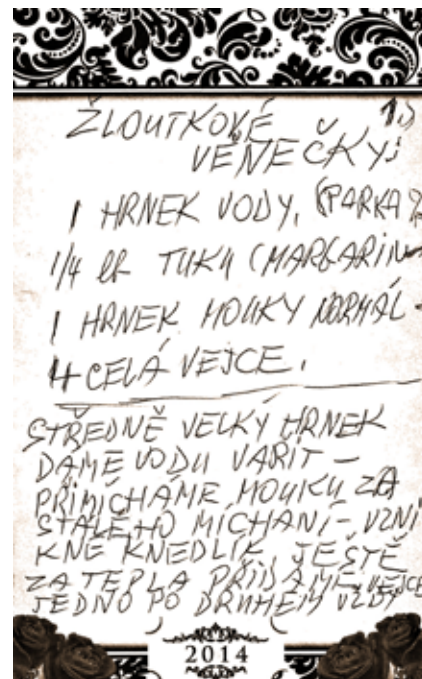 1.)
ŽLOUTKOVÉ
VĚNEČKY:
1 HRNEK VODY, (PARKA
1/4 TUKU (MARGARIN
1 HRNEK MOUKY NORMÁL
4 CELÁ VEJCE.
STŘEDNĚ VELKÝ HRNEK
DÁME VODU VAŘIT –
PŘIMÍCHÁME MOUKU ZA
STÁLÉHO MÍCHANÍ – VZNI
KNE KNEDLÍK, JEŠTĚ
ZA TEPLA PŘIDÁME VEJCE
JEDNO PO DRUHÉM VŽDY
2014